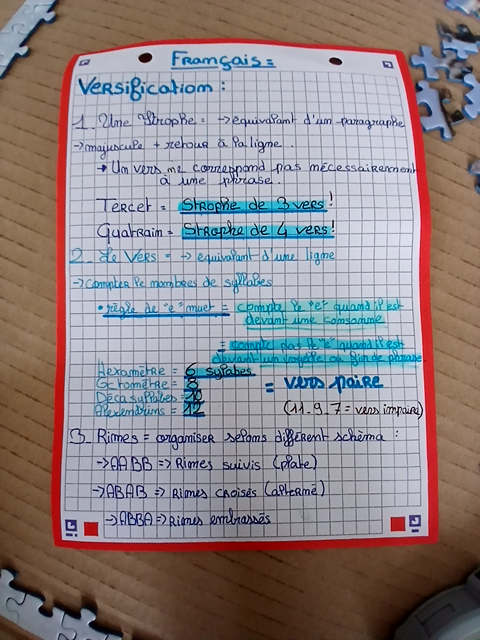 Français =
Versification :
1_ Une Strophe = → équivalant d'un paragraphe
→ majuscule + retour à la ligne.
→ Un vers ne correspond pas nécessairement
à une phrase.
Tercet = Strophe de 3 vers !
Quatrain = Strophe de 4 vers !
2_ Le Vers = → équivalant d'une ligne
→ Compter le nombres de syllabes
• règle de "e" muet = compte le "e" quand il est
devant une consonne
= compte pas le "e" quand il est
devant un voyelle ou fin de phrase
Hexamètre = 6 syllabes
Octomètre = 8
Décasyllabes = 10
Alexendrins = 12
= vers paire
(11_9_7 = vers impaire)
3_ Rimes = organiser selons différent schéma :
→ AABB => Rimes suivis (plate)
→ ABAB => Rimes croisés
→ ABBA => Rimes embrassés